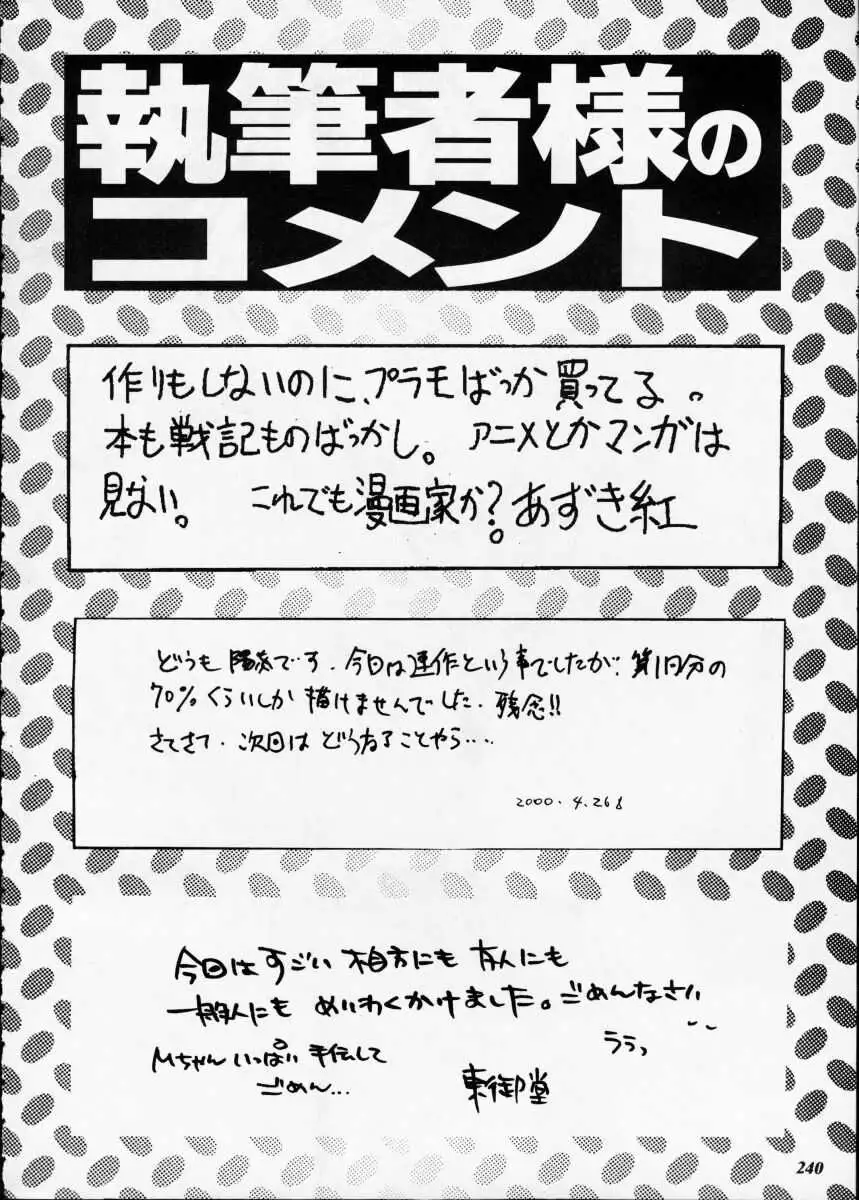 執筆者様の
コメント
作りもしないのに、プラモばっか買ってる。
本も戦記ものばっかし。アニメとかマンガは
見ない。これでも漫画家か？あずき紅
どうも陽炎です。今回は連作という事でしたが、第1回分の
70%くらいしか描けませんでした。残念!!
さてさて、次回はどうなることやら‥‥
2000.4.26
今回はすごい相方にも友人にも
一般人にもめいわくかけました。ごめんなさい
ううっ
Mちゃんいっぱい手伝して
ごめん...
東御堂
240